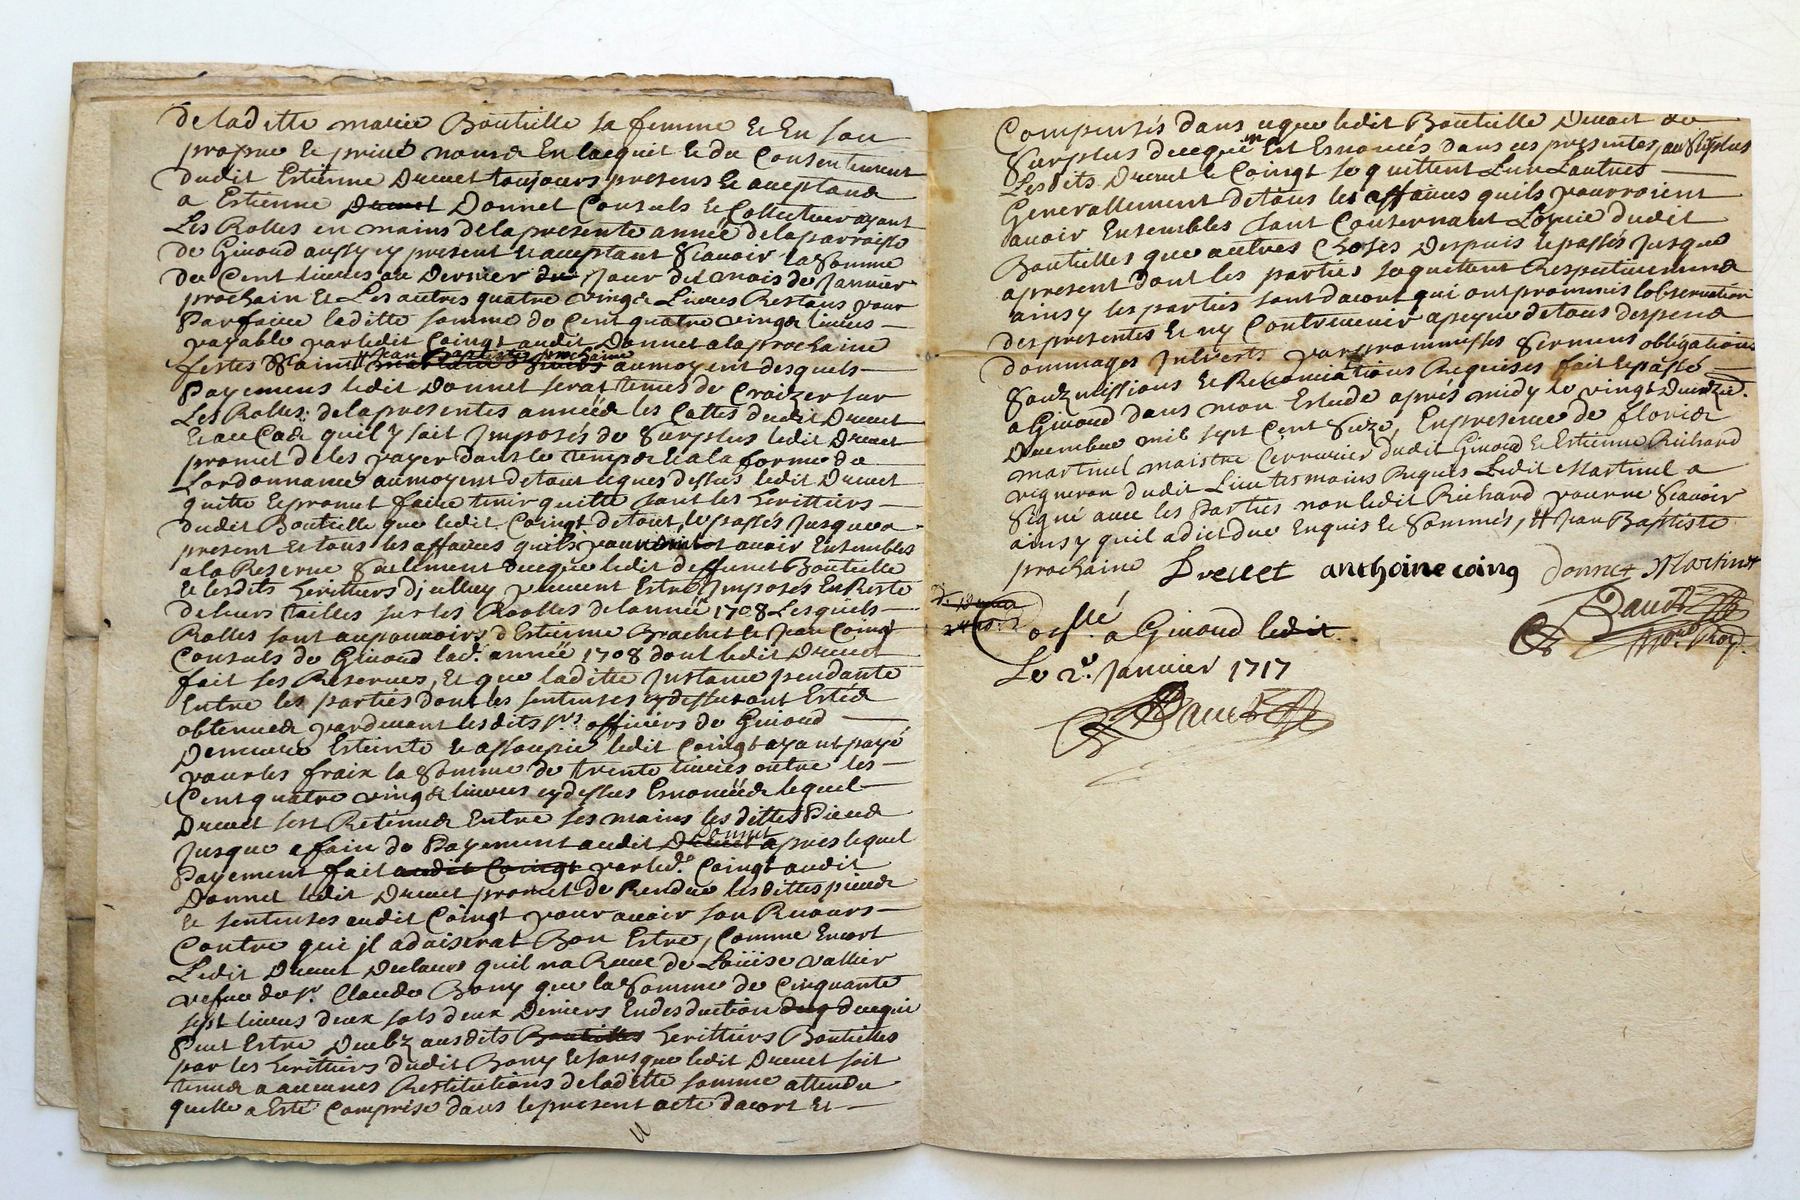 de laditte marie Bouteille sa femme et En son
propre et privé nom et En lacquit et du Consentement
dudit Estienne Drevet toujours present et acceptand
a Estienne Drevet Donnet Consuls et Collecteur ayant
Les Rolles en mains de la presente année de la parroisse
de Givord aussy icy present et acceptant Scavoir la Somme
de Cent livres au Dernier du Jour du mois de Janvier
prochain et Les autres quatre vingt Livres Restans pour
Parfaire laditte somme de Cent quatre vingt livres
payable par ledit Coingt audit Donnet a la prochaine
Jean Baptiste prochaine
festes Saint # au moyent desquels
Payemens ledit Donnet serat tenus de Croizer sur
Les Rolles de la presentes année les Cottes dudit Drevet
et au Cas quil y soit Imposés de Surplus ledit Drevet
promet de les payer dans le temps et a la forme de
Lordonnance au moyent de tout ce que dessus ledit Drevet
quitte et promet faire tenir quitte tant les heritiers
dudit Bouteille que ledit Coingt de tout le passés Jusque a
present et tous les affaires quils pourroient avoir Ensembles
a la Reserve Seulement de ce que ledit deffunct Bouteille
et lesdits heritiers dicelluy peuvent Estre Imposés En Reste
de leurs tailles sur les Roolles de lannée 1708 Lesquels
Rolles sont au pouvoirs d'Estienne Brachet et Jean Coingt
Consuls de Givord lad. année 1708 dont ledit Drevet
fait ses Reserves, Et que laditte Instance pendante
Entre les parties dont les sentenses cy dessus ont Estéd
obtenued pardevant lesdits srs officiers de Givord
Demeure Esteinte et assoupie ledit Coingt ayant payé
pour les fraix la Somme de trente livres outre les
Cent quatre vingt livres cy dessus Enoncéed lequel
Drevet sest Retenud Entre ses mains les dittes Pieced
Donnet
Jusque a fain de Payement audit Drevet apres lequel
Payement fait audit Coingt par led. Coingt audit
Donnet ledit Drevet promet de Rendre lesdittes pieced
et sentenses audit Coingt pour avoir son Recours
Contre qui il adviserat Bon Estre, Comme Encort
Ledit Drevet Declare quil na Receu de Loüise vallier
vefve de sr. Claude Bony que la Somme de Cinquante
sept livres deux sols deux Deniers En desduction du de ce qui
Peut Estre Deubz ausdits Boutilles heritiers Boutilles
par les heritiers dudit Bony et sans que ledit Drevet soit
tenud a aucunes Restitutions de laditte somme attendu
quelle a Esté Comprise dans le present acte dacort et
Compensés dans ce que ledit Boutille Devoit de
Surplus de ce qui Est Enoncés dans ces presentes, au Surplus
Lesdits Drevet et Coingt se quittent Lun Lautres
Generallement de tous les affaires quils pourroient
avoir Ensembles tant Conternant Lhoirie dudit
Boutilles que autres Choses Despuis le passés Jusque
apresent dont les parties se quittent Respectivemend
ainsy les parties sont dacort qui ont prommis lobservation
des presentes et ny Contrevenir a peyne de tous despend
dommages Interests par prommesses Sermens obligations
Souzmissions et Renonciations Requises fait et passé
a Givord dans mon Estude après midy le vingt Deuxie.
Decembre mil sept Cent Seize, En presence de floried
martinel maistre Cerrurier dudit Givord et Estienne Richard
vigneron dudit Lieu tesmoins Requis Ledit Martinel a
Signé avec les Parties non ledit Richard pour ne Scavoir
ainsy quil a dict du Enquis et Sommés, # Jean Baptiste
prochaine Drevet anthoine coing Donnet Martinet
Baudet
Conllé a Givord ledit
Le 2e. Janvier 1717
Baudet